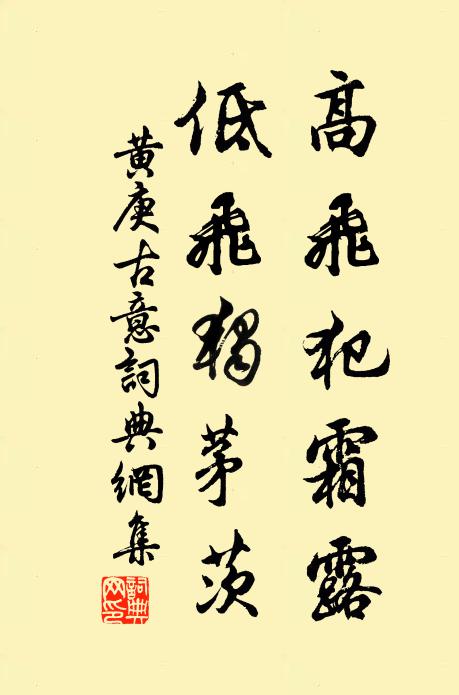 高飛犯霜露
低飛獨茅茨
黄庚古意詞典網集
詞典
网印